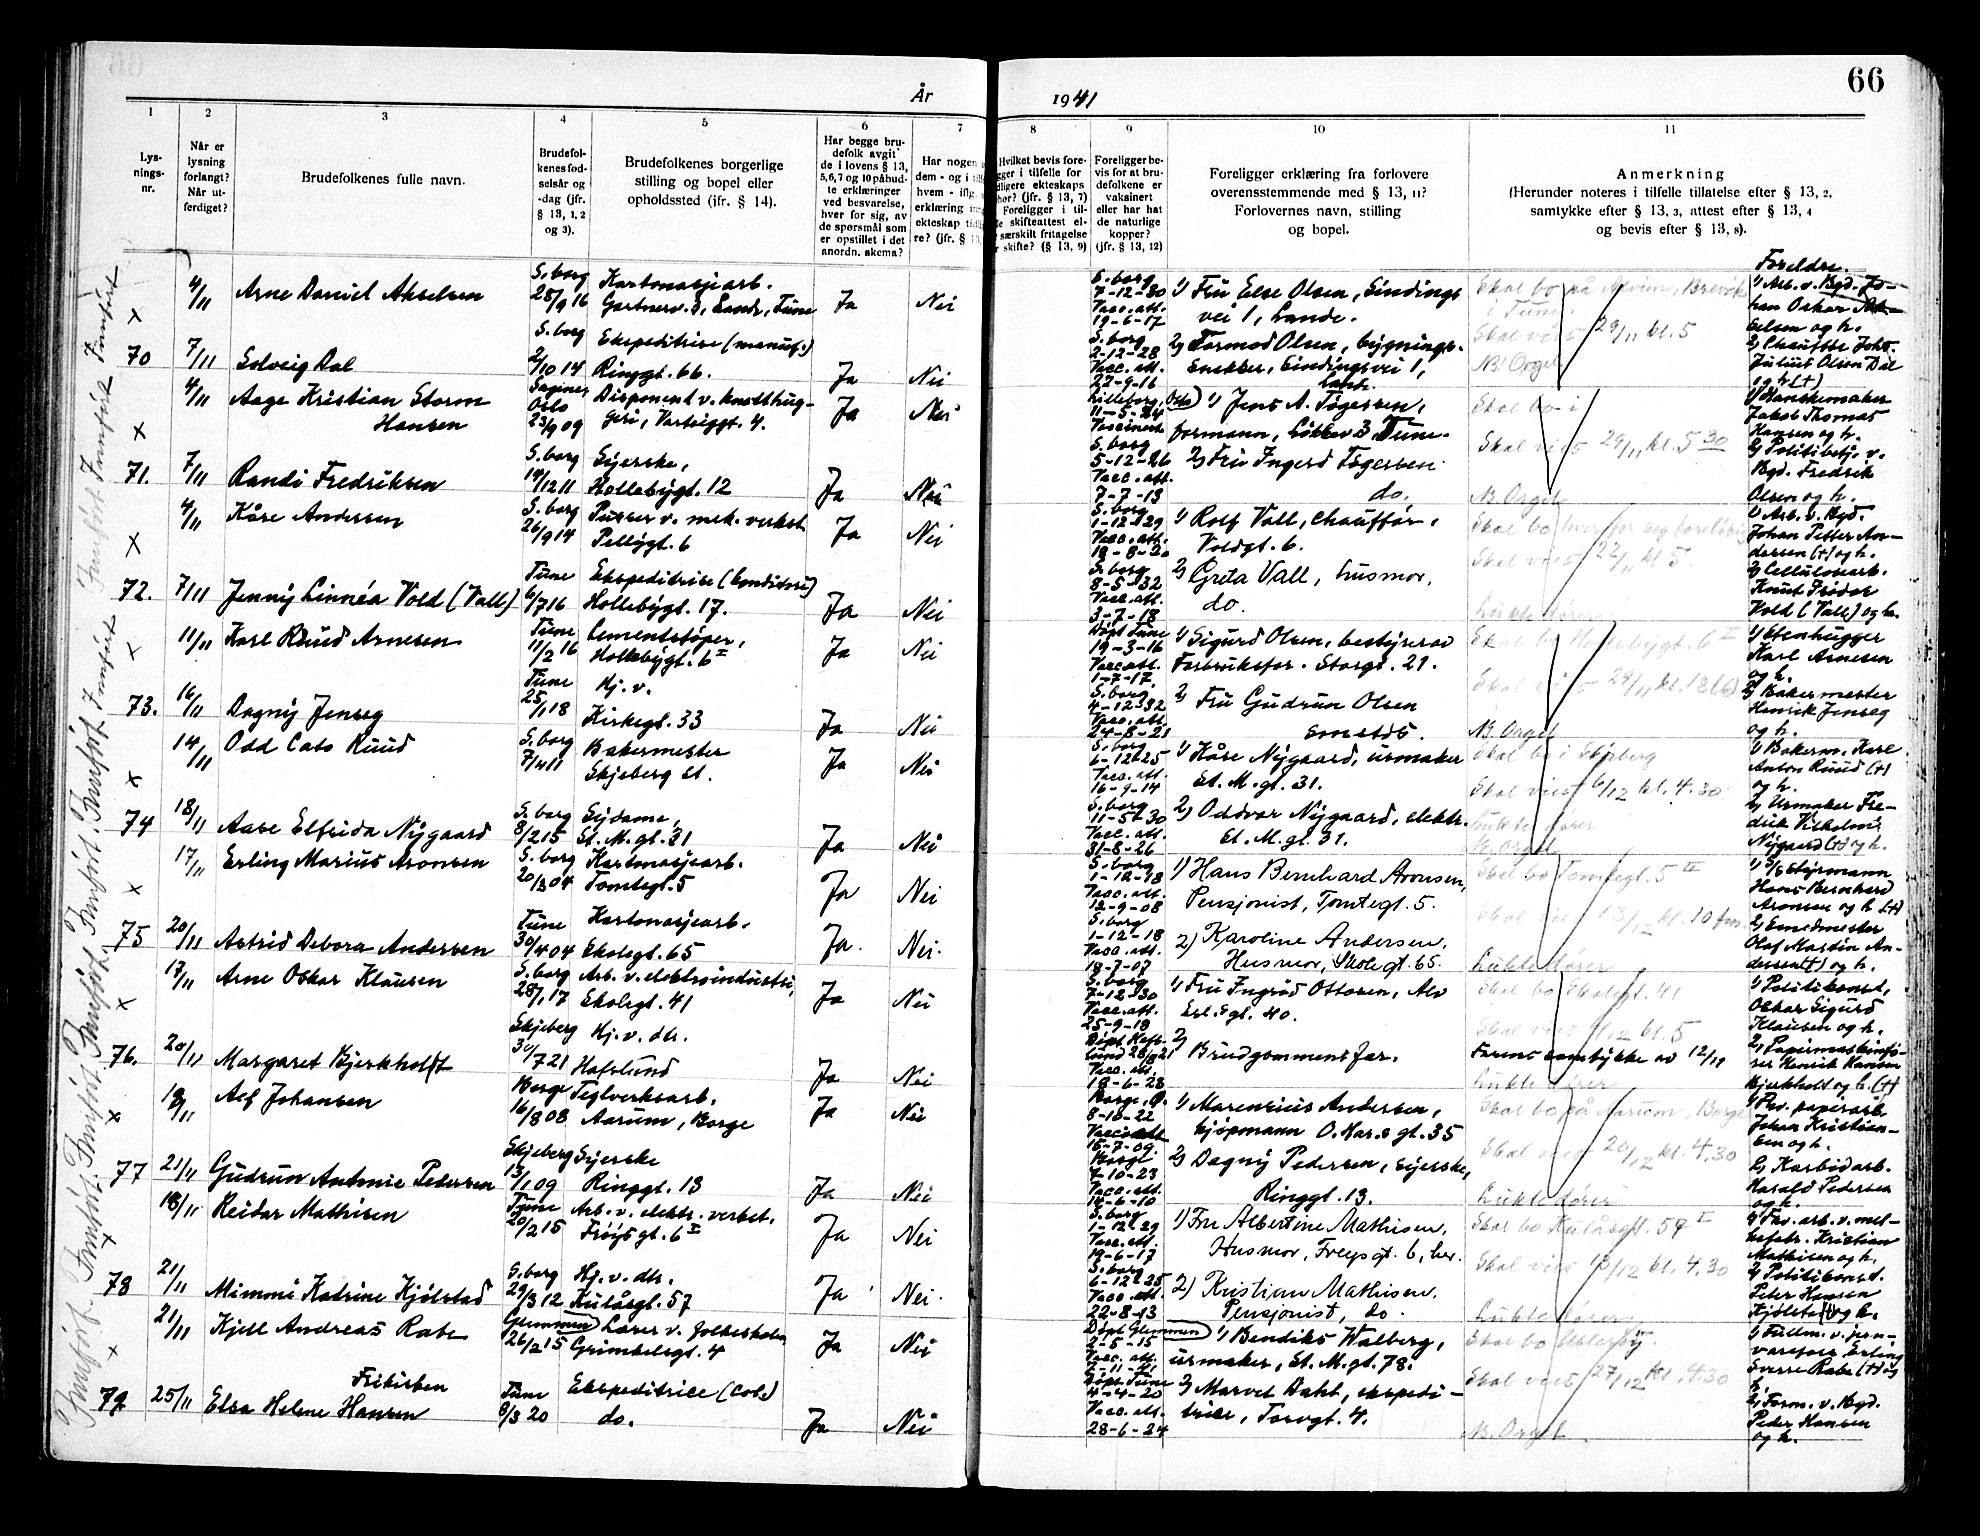 66
År
1941
1
2
3
4
5
6
7
8
9
10
11
Lys-
nings-
nr.
Når er
lysning
forlangt?
Når ut-
ferdiget?
Brudefolkenes fulle navn.
Brudefol-
kenes fød-
selsår og
-dag (jfr.
§ 13, 1, 2
og 3).
Brudefolkenes borgerlige
stilling og bopel eller
opholdssted (jfr. § 14).
Har begge bru-
defolk avgit
de i lovens § 13,
5, 6, 7 og 10 påbud-
te erklæringer
ved besvarelse,
hver for sig, av
de spørsmål som
er opstillet i det
anordn. skema?
Har nogen
dem - og i
hvem - iflg.
erklæring
ekteskap
re? (jfr. §
Hvilket bevis fore-
i tilfelle for
ekteskaps
(jfr. § 13, 7)
Foreligger i til-
skifteattest
særskilt fritagelse
skifte? (§ 13, 9)
Foreligger be-
vis for at bru-
defolkene er
vaksinert
eller har hat
de naturlige
kopper?
(jfr. § 13, 12)
Foreligger erklæring fra forlovere
overensstemmende med § 13, 11?
Forlovernes navn, stilling
og bopel.
Anmerkning
(Herunder noteres i tilfelle tillatelse efter § 13, 2,
samtykke efter § 13, 3, attest efter § 13, 4
og bevis efter § 13, 8).
Foreldre.
x
4/11
Arne Daniel Akselsen
S.borg
25/9 16
Kartonasjearb.
Ja
Nei
S.borg
7-12-30
Vacc. att.
19-6-17
1) Fru Else Olsen, Sindings
vei 1, Lande.
Skal vies 29/11 kl. 5
70
7/11
Solveig Dal
S.borg
2/10 14
Ekspeditrise (manuf.)
Ringgt. 66.
Ja
Nei
S.borg
2-12-28
Vacc. att.
27-9-16
2) Tormod Olsen, bygnings-
snekker, Sindingsvei 1,
Lande.
NB! Orgel
2) Chauffør Joh.
Julius Olsen Dal
og h (+)
x
4/11
Aage Kristian Storm
Hansen
Oslo
23/9 09
Disponent v. knotthug-
geri, Varteiggt. 4.
Ja
Nei
11-5-24
Vaccinert
1) Jens A. Tøgersen,
formann, Løkkev 3, Tune.
Skal bo i
Skal vies 29/11 kl. 5 30
1) Hanskemaker
Jakob Thomas
Hansen og h.
71.
7/11
Randi Fredriksen
S.borg
14/12 11
Syerske,
Hollebygt. 12
Ja
Nei
S.borg
5-12-26
Vacc. att.
7-7-13
2) Fru Ingerd Tøgersen
do.
NB. Orgel
2) Politibetj. v.
Bgd. Fredrik
Olsen og h.
x
4/11
Kåre Andersen
S.borg
26/9 14
Pusser v. mek. verkst.
Pellygt. 6
Ja
Nei
S.borg
1-12-29
Vacc. att.
18-8-20
1) Rolf Vall, chauffør,
Voldgt. 6.
Skal bo hver for seg foreløbig
Skal vies 22/11 kl 5.
1) Arb. v. Bgd.
Johan Petter An-
dersen (+) og h.
72.
7/11
Jenny Linnéa Vold (Vall)
Tune
6/7 16
Ekspeditrise (konditori)
Hollebygt. 17.
Ja
Nei
S.borg
8-5-32
Vacc. att.
3-7-18
2) Greta Vall, husmor,
do.
Lukte dører
2) Cellulosearb.
Knut Fridor
Vold (Vall) og h.
x
11/11
Karl Ruud Arnesen
Tune
11/2 16
Cementstøper,
Hollebygt. 6 II
Ja
Nei
Døpt Tune
19-3-16
Vacc. att.
1-7-17.
1) Sigurd Olsen, bestyrer av
Forbruksfor. Storgt. 21.
Skal bo Hollebygt. 6 II
Skal vies 29/11 kl. 18 (6)
1) Stenhugger
Karl Arnesen
og h.
73.
16/11
Dagny Jenseg
Tune
25/1 18
Hj. v.
Kirkegt. 33
Ja
Nei
S.borg
4-12-32
Vacc. att.
24-8-21
2) Fru Gudrun Olsen
smstds.
NB. Orgel
2) Bakermester
Henrik Jenseg
og h.
x
14/11
Odd Cato Ruud
S.borg
7/4 11
Bakermester
Skjeberg St.
Ja
Nei
S.borg
6-12-25
Vacc. att.
16-9-14
1) Kåre Nygaard, urmaker
St. M. gt. 31.
Skal bo i Skjeberg
Skal vies 6/12 kl. 4.30
1) Bakerm. Karl
Anton Ruud (+)
og h.
74
18/11
Aase Elfrida Nygaard
S.borg
8/2 15
Sydame,
St. M. gt. 31
Ja
Nei
S.borg
11-5-30
Vacc. att.
31-8-26
2) Oddvar Nygaard, elektr.
St. M. gt. 31.
Lukte dører
NB. Orgel
2) Urmaker Fre-
drik Vilhelm
Nygaard (+) og h.
x
17/11
Erling Marius Aronsen
S.borg
20/3 04
Kartonasjearb.
Tomtegt. 5
Ja
Nei
S.borg
1-12-18
Vacc. att.
12-9-08
1) Hans Bernhard Aronsen,
Pensjonist, Tomtegt. 5.
Skal bo Tomtegt. 5 III
Skal vies 13/12 kl. 10 fm.
1) S/S Styrmann
Hans Bernhard
Aronsen og h (+)
75
20/11
Astrid Debora Andersen
Tune
30/4 04
Kartonasjearb.
Skolegt. 65
Ja.
Nei.
S.borg
1-12-18
Vacc. att.
18-7-07
2) Karoline Andersen,
Husmor, Skolegt. 65.
Lukte dører
2) Smedmester
Olaf Martin An-
dersen (+) og h.
x
17/11
Arne Oskar Klausen
S.borg
28/1 17
Arb. v. elektroindustri,
Skolegt. 41
Ja
Nei
S.borg
7-12-30
Vacc. att.
25-9-18
1) Fru Ingrid Ottosen, Alv
Erl.s gt. 40.
Skal bo Skolegt. 41
1) Politikonst.
Oskar Sigurd
Klausen og h.
76.
20/11
Margaret Bjerkholt
Skjeberg
Hj. v. dtr.
Hafslund
Ja
Nei
Vacc. att.
18-6-28
2)
Brudgommens far.
Farens samtykke av 12/11
Lukte dører
2) Papirmaskinfø-
rer Henrik Hansen
Bjerkholt og h. (+)
x
18/11
Alf Johansen
Borge
16/8 08
Teglverksarb.
Aarum, Borge
Ja
Nei
8-10-22
15-7-09
1) Marensius Andersen,
kjøpmann O. Har.s gt. 35
Skal bo på Aarum, Borge
Skal vies 20/12 kl. 4.30
1) Fhv. papirarb.
Johan Kristian-
sen og h.
77
21/11
Gudrun Antonie Pedersen
Skjeberg
13/1 09
Syerske
Ringgt. 13
Ja
Nei
Borge
7-10-23
Vacc. att.
14-6-10
2) Dagny Pedersen, syerske,
Ringgt. 13.
Lukte dører
2) Karbidarb.
Harald Pedersen
og h.
x
18/11
Reidar Mathisen
Tune
20/2 15
Arb. v. elektr. verket.
Frøysgt. 6 I
Ja
Nei
S.borg
1-12-29
Vacc. att.
19-6-17
1) Fru Albertine Mathisen,
Husmor, Freysgt. 6, her.
Skal bo Kulåsgt. 57 I
Skal vies 13/12 kl. 4.30
1) Fhv. arb. v. mel-
kefabr. Kristian
Mathisen og h.
78
21/11
Mimmi Katrine Kjølstad
S.borg
29/3 12
Hj. v. dtr.
Kulåsgt. 57
Ja
Nei.
S.borg
6-12-25
Vacc. att
22-8-13
2) Kristian Mathisen,
Pensjonist, do.
Lukte dører
2) Politikonst.
Peter Hansen
Kjølstad (+) og h.
x
21/11
Kjell Andreas Rabe
Glemmen
26/2 15
Lærer v. folkeskolen
Grimkelsgt. 4
Ja
Nei
Døpt Glemmen
2-5-15
Vacc. att.
2-11-41
1) Bendiks Walberg,
urmaker, St. M. gt. 78.
Skal vies 27/12 kl. 4.30
1) Fullm. v. jern-
vareforr. Erling
Sverre Rabe (+) og
h.
79
25/11
Friksben
Elsa Helene Hansen
Tune
8/3 20
Ekspeditrice (col.)
do.
Ja
Nei
Døpt Tune
4-4-20
Vacc. att.
28-6-24
2) Marvel Dahl, ekspedi-
trice, Torvgt. 4.
NB. Orgel
2) Form. v. Bgd.
Peder Hansen
og h.
Innført. Innført. Innført. Innført. Innført. Innført. Innført. Innført. Innført. Innført